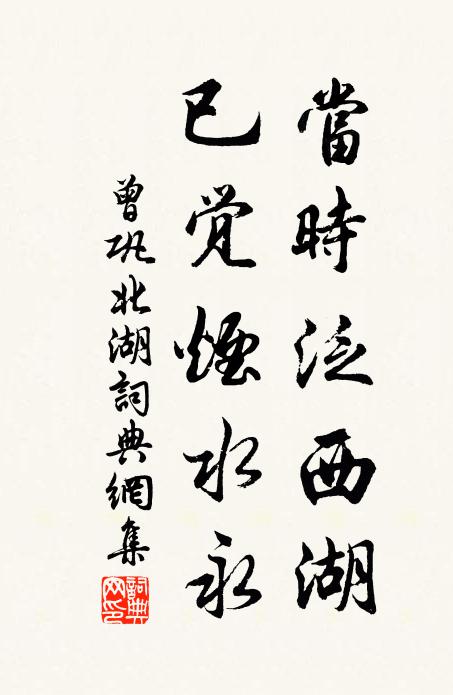 當時泛西湖
已覺煙水永
曾巩北湖詞典網集
詞典網印